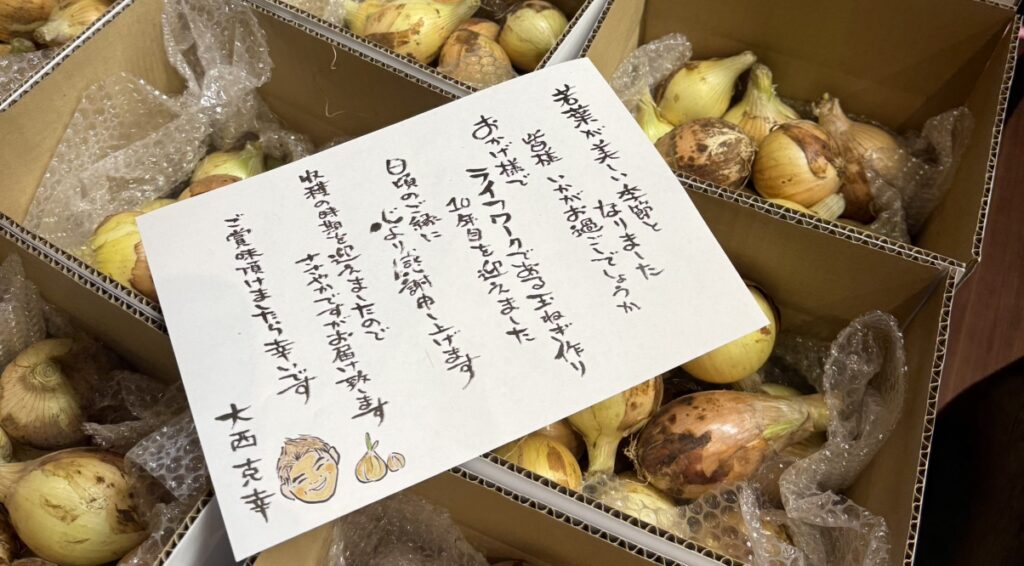 若葉が美しい季節と
なりました
皆様 いかがお過ごしでしょうか
おかげ様で
ライフワークである玉ねぎ作り
10年目を迎えました
日頃のご縁に
心より感謝申し上げます
収穫の時期を迎えましたので
ささやかですがお届け致ます
ご賞味頂けましたら幸いです
大西克幸